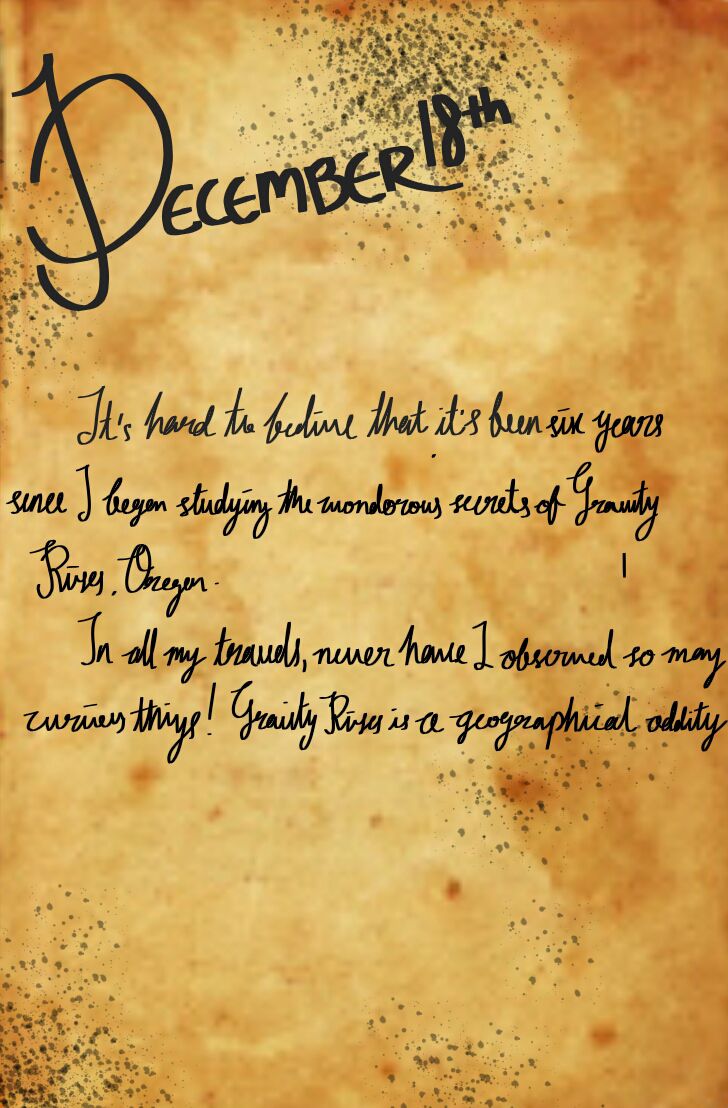 DECEMBER 18th
It's hard to believe that it's been six years
since I began studying the wonderous secrets of Gravity
Rises, Oregon.
In all my travels, never have I observed so many
curious things! Gravity Rises is a geographical oddity